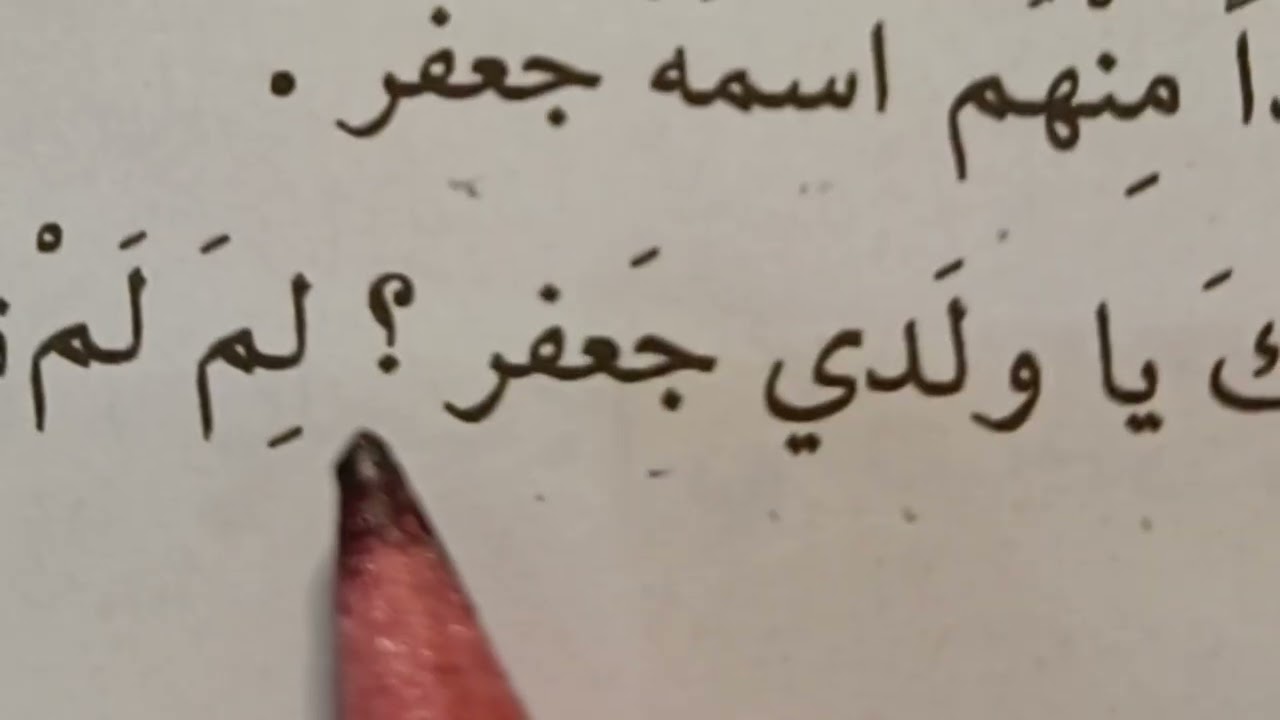 مِنْهُم اسمه جعفر .
يا ولَدي جَعفر ؟ لِمَ لَمْ